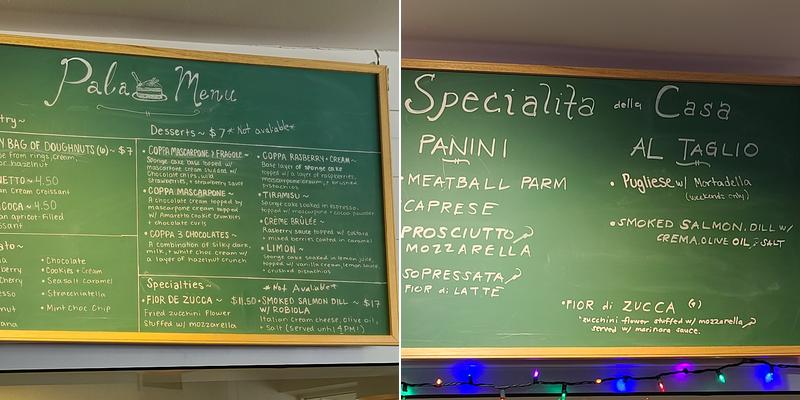 Pala Menu
try~
Desserts ~ $7 * Not available*
Y BAG OF DOUGHNUTS (6) ~ $7
se from rings, cream,
or hazelnut
NETTO ~ 4.50
an Cream Croissant
COCA ~ 4.50
an apricot filled
ssant
• COPPA MASCARPONE & FRAGOLE ~
Sponge cake base topped w/
mascarpone cream studded w/
chocolate chips, wild
strawberries, + strawberry sauce
• COPPA MASCARPONE ~
A chocolate cream topped by
mascarpone cream topped
w/ Amaretto cookie crumbles
+ chocolate curls
• COPPA 3 CHOCOLATES ~
A combination of silky dark,
milk, + white choc cream w/
a layer of hazelnut crunch
• COPPA RASBERRY + CREAM ~
Base layer of sponge cake
topped w/ a layer of raspberries,
mascarpone cream, + brushed
pistachios
• TIRAMISU ~
Sponge cake soaked in espresso,
topped w/ mascarpone + cocoa powder
• CRÈME BRÛLÉE ~
Rasberry sauce topped w/ custard
+ mixed berries coated in caramel
• LIMON ~
Sponge cake soaked in lemon juice,
topped w/ vanilla cream, lemon sauce,
crushed pistachios
ato~
la
berry
Cherry
esso
nut
ana
• Chocolate
• Cookies + Cream
• Sea Salt Caramel
• Stracchiatella
• Mint Choc Chip
Specialties ~
* Not Available*
• FIOR DE ZUCCA ~ $11.50
Fried zucchini flower
Stuffed w/ mozzarella
• SMOKED SALMON DILL ~ $17
W/ ROBIOLA
Italian cream cheese, olive oil,
+ Salt (served until 4PM!)
Specialita della Casa
PANINI
- MEATBALL PARM
CAPRESE
PROSCIUTTO
MOZZARELLA
SOPRESSATA
FIOR di LATTE
AL TAGLIO
• Pugliese w/ Mortadella
(weekends only)
• SMOKED SALMON, DILL w/
CREMA, OLIVE OIL, + SALT
• FIOR di ZUCCA
zucchini flower stuffed w/ mozzarella
served w/ marinara sauce.